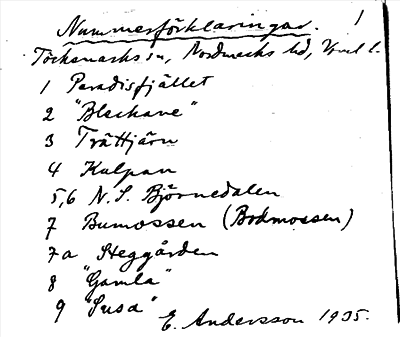 Nummerförklaringar. 1
Töcksmarks sn, Nordmarks hd, Vrml l.
1 Paradisfjället
2 "Bleckane"
3 Trättjärn
4 Kulpan
5,6 N. S. Björnedalen
7 Bumossen (Bodmossen)
7a Steggården
8 "Gamla"
9 "Susa"
E. Andersson 1935.